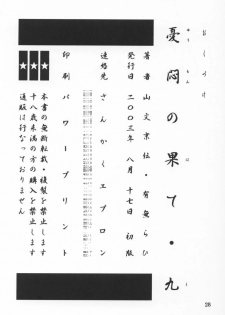 おくづけ
憂悶の果て・九
著者 山文京伝・有無らひ
発行日 二〇〇三年 八月 十七日 初版
連絡先 さんかくエプロン
印刷 パワープリント
本書の無断転載・複製を禁止します
十八歳未満の方の購入を禁止します
通販は行なっておりません
26